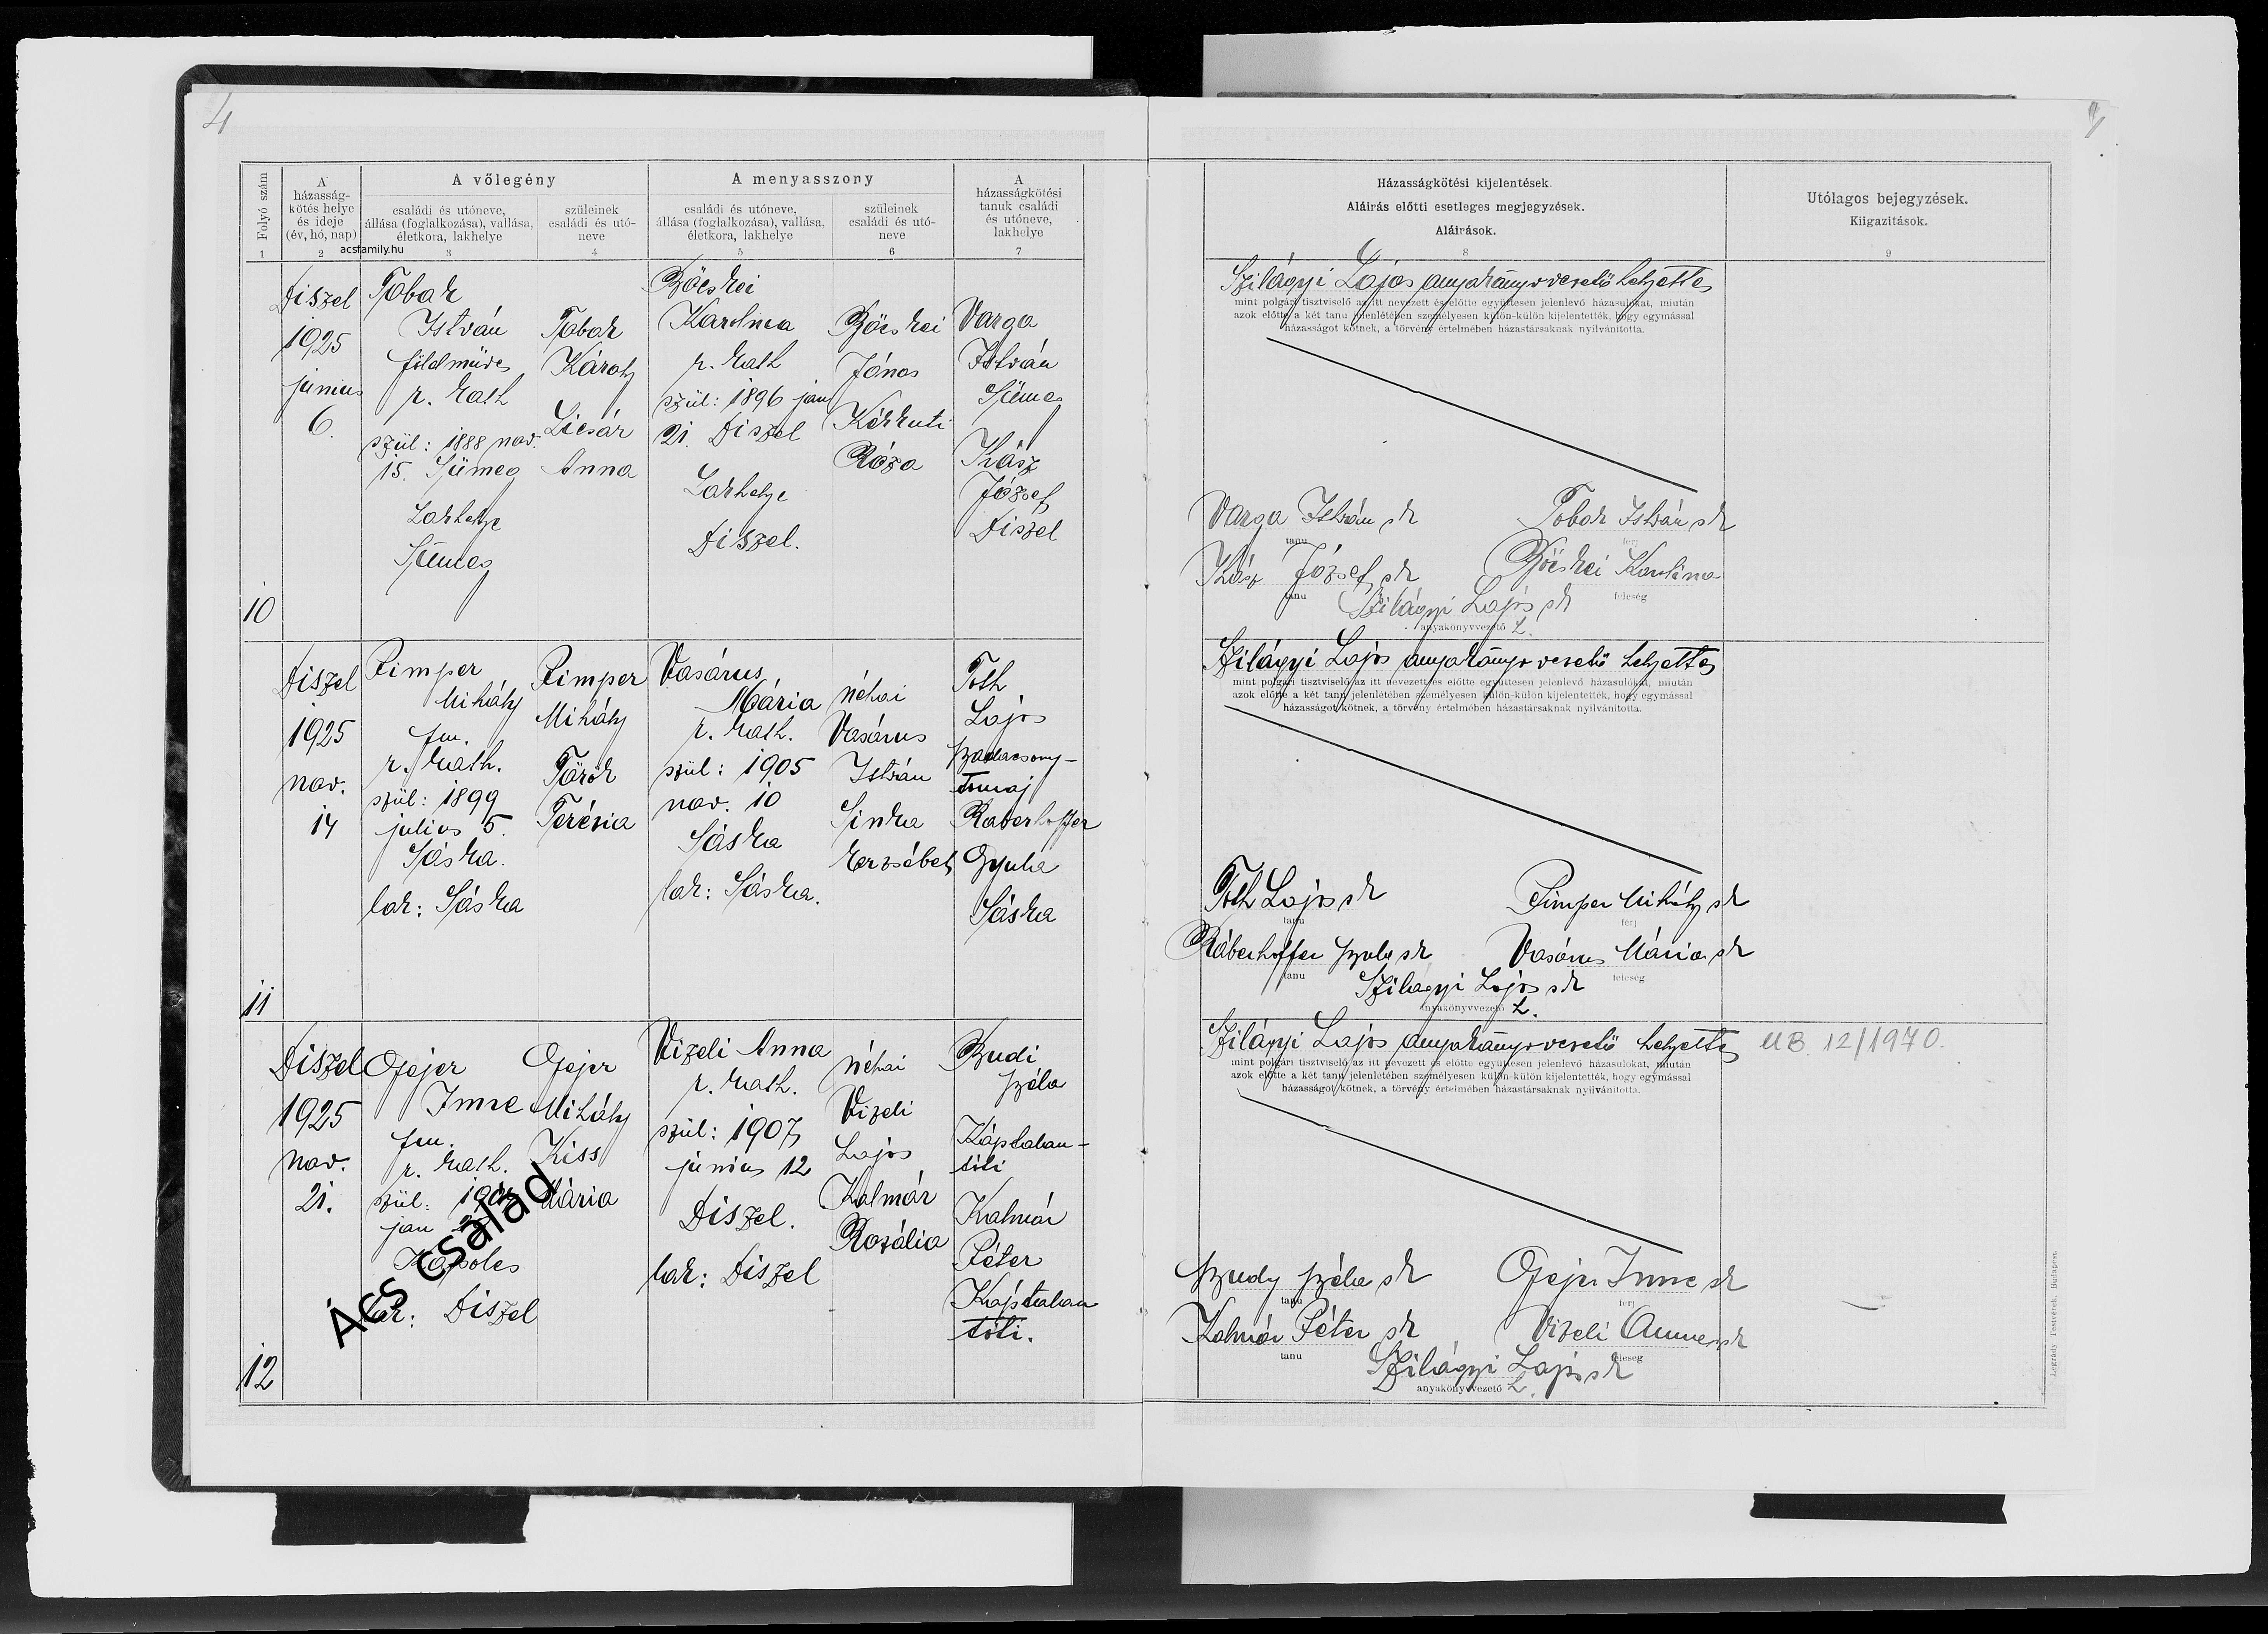 4
Folyó szám
A házasság-
kötés helye
és ideje
(év, hó, nap)
A vőlegény
családi és utóneve,
állása (foglalkozása), vallása,
életkora, lakhelye
szüleinek
családi és utó-
neve
A menyasszony
családi és utóneve,
állása (foglalkozása), vallása,
életkora, lakhelye
szüleinek
családi és utó-
neve
A
házasságkötési
tanuk családi
és utóneve,
lakhelye
acsfamily.hu
1 2 3 4 5 6 7
Diszel
1925
junius
6.
Tobak
István
földműves
r. kath
szül: 1888 nov.
15. Sümeg
Lakhelye
Tobak
Károly
Licsár
Anna
Böcskei
Karolina
r. kath
szül: 1896 jan
21. Diszel
Lakhelye
Diszel.
Böcskei
János
Kérkuti
Róza
Varga
István
Kász
József
Diszel
10
Diszel
1925
nov.
14
Pimper
Mihály
fm.
r. kath.
szül: 1899
julius 5.
Sáska.
lak: Sáska
Pimper
Mihály
Török
Terézia
Vasárus
Mária
r. kath.
szül: 1905
nov. 10
Sáska
lak: Sáska.
néhai
Vasárus
István
Sinka
Erzsébet
Toth
Lajos
Badacsony-
tomaj
Raberhoffer
Gyula
Sáska
11
Diszel
1925
nov.
21.
Imre
fm.
r. kath.
szül:
jan
Kapolcs
lak: Diszel
Mihály
Kiss
Mária
Vizeli Anna
r. kath.
szül: 1907
junius 12
Diszel.
lak: Diszel
néhai
Vizeli
Lajos
Kalmár
Rozália
Budi
Béla
Káptalan-
tóti
Kalmár
Péter
Káptalan
tóti.
12
Ács család
Házasságkötési kijelentések.
Aláirás előtti esetleges megjegyzések.
Aláirások.
8
Utólagos bejegyzések.
Kiigazitások.
9
Szilágyi Lajos anyakönyvvezető helyettes
mint polgári tisztviselő az itt nevezett és előtte együttesen jelenlevő házasulókat, miután
azok előtte a két tanu jelenlétében személyesen külön-külön kijelentették, hogy egymással
házasságot kötnek, a törvény értelmében házastársaknak nyilvánitotta.
Varga István sk Tobak István sk
tanu férj
Kász József sk Böcskei Karolina
tanu feleség
Szilágyi Lajos sk
anyakönyvvezető h.
Szilágyi Lajos anyakönyvvezető helyettes
mint polgári tisztviselő az itt nevezett és előtte együttesen jelenlevő házasulókat, miután
azok előtte a két tanu jelenlétében személyesen külön-külön kijelentették, hogy egymással
házasságot kötnek, a törvény értelmében házastársaknak nyilvánitotta.
Toth Lajos sk Pimper Mihály sk
tanu férj
Ráberhoffer Gyula sk Vasárus Mária sk
tanu feleség
Szilágyi Lajos sk
anyakönyvvezető h.
Szilágyi Lajos anyakönyvvezető helyettes
mint polgári tisztviselő az itt nevezett és előtte együttesen jelenlevő házasulókat, miután
azok előtte a két tanu jelenlétében személyesen külön-külön kijelentették, hogy egymással
házasságot kötnek, a törvény értelmében házastársaknak nyilvánitotta.
UB. 12/1970.
Budy Béla sk Imre sk
tanu férj
Kalmár Péter sk Vizeli Anna sk
tanu feleség
Szilágyi Lajos sk
anyakönyvvezető h.
Légrády Testvérek, Budapest.